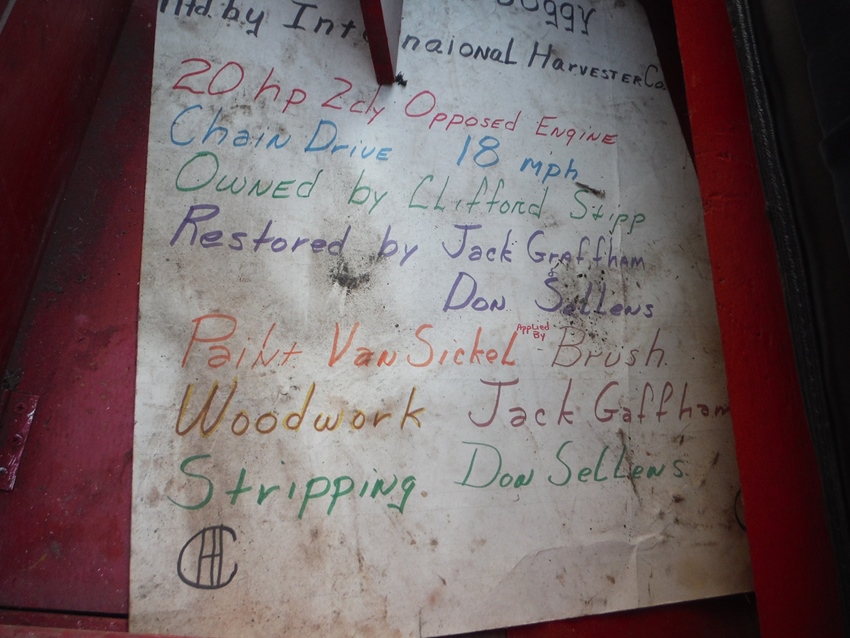 Buggy
Mfd by International Harvester Co.
20 hp 2cly Opposed Engine
Chain Drive 18 mph
Owned by Clifford Stipp
Restored by Jack Graffham
Don Sellens
Paint Van Sickel Applied By - Brush
Woodwork Jack Gaffham
Stripping Don Sellens
IHC